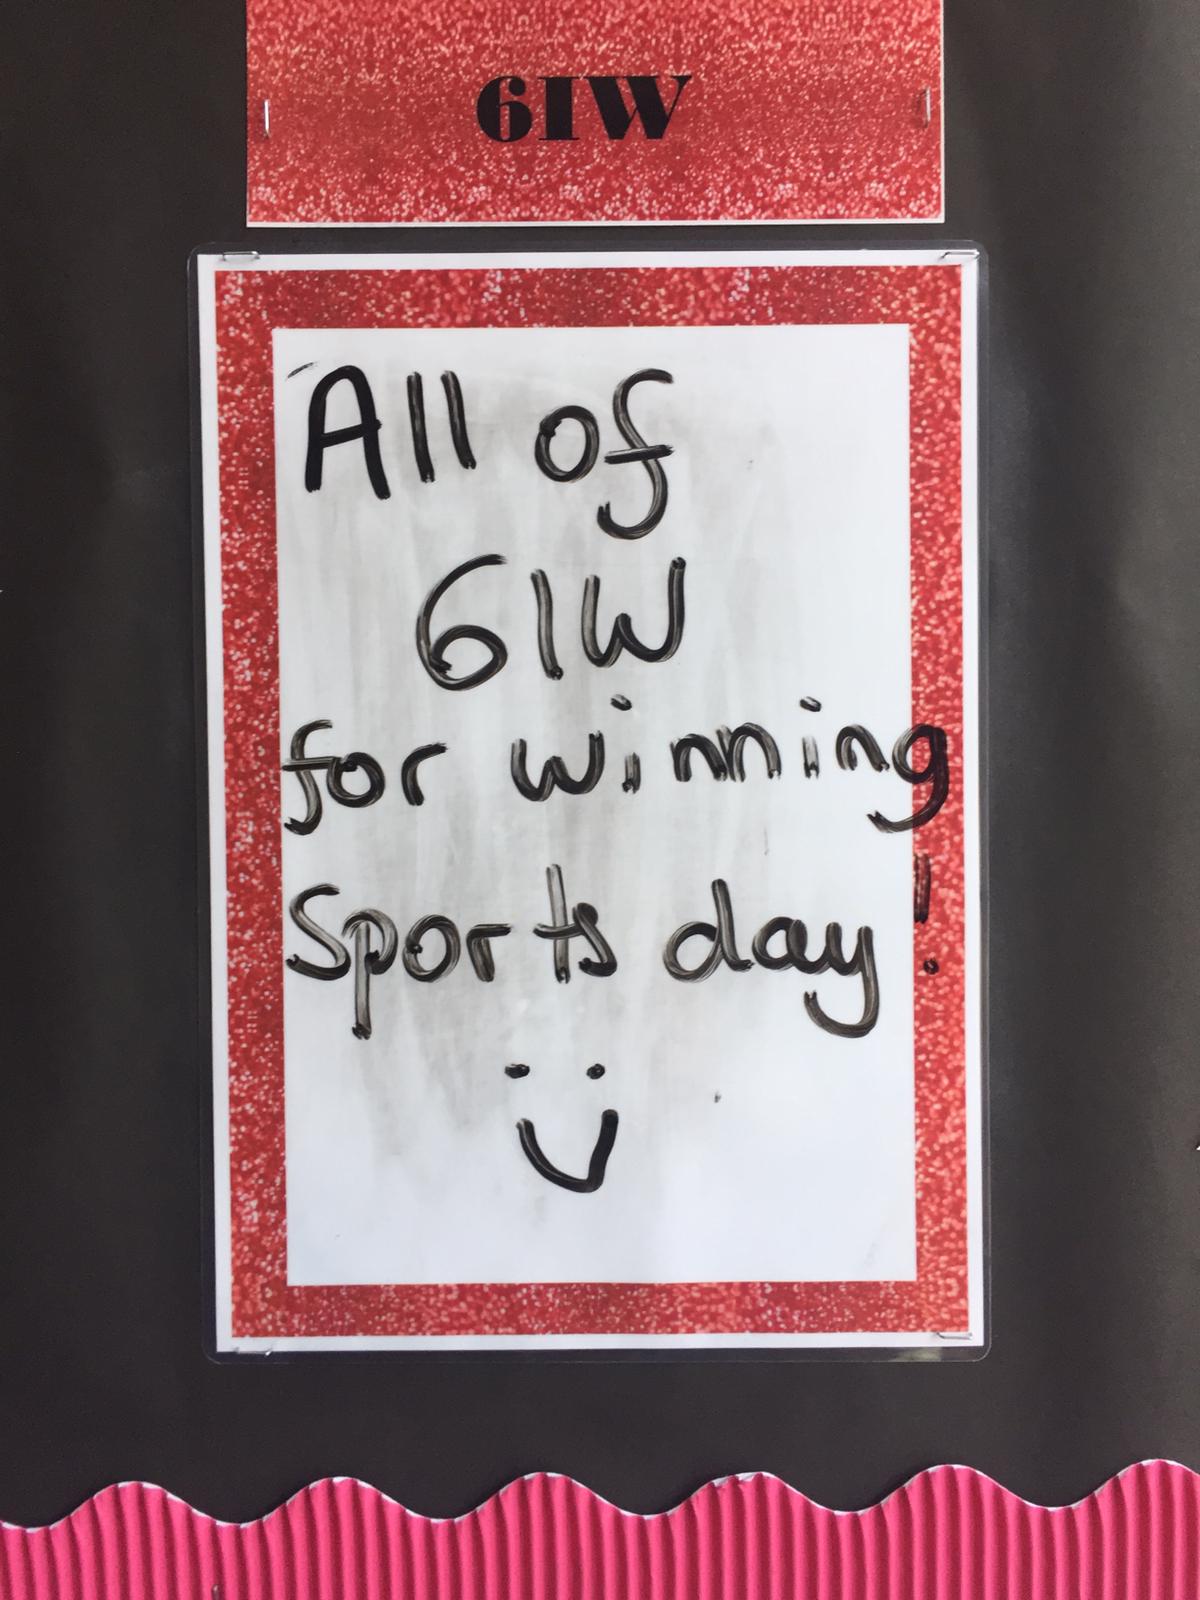 6IW
All of
6IW
for winning
Sports day!